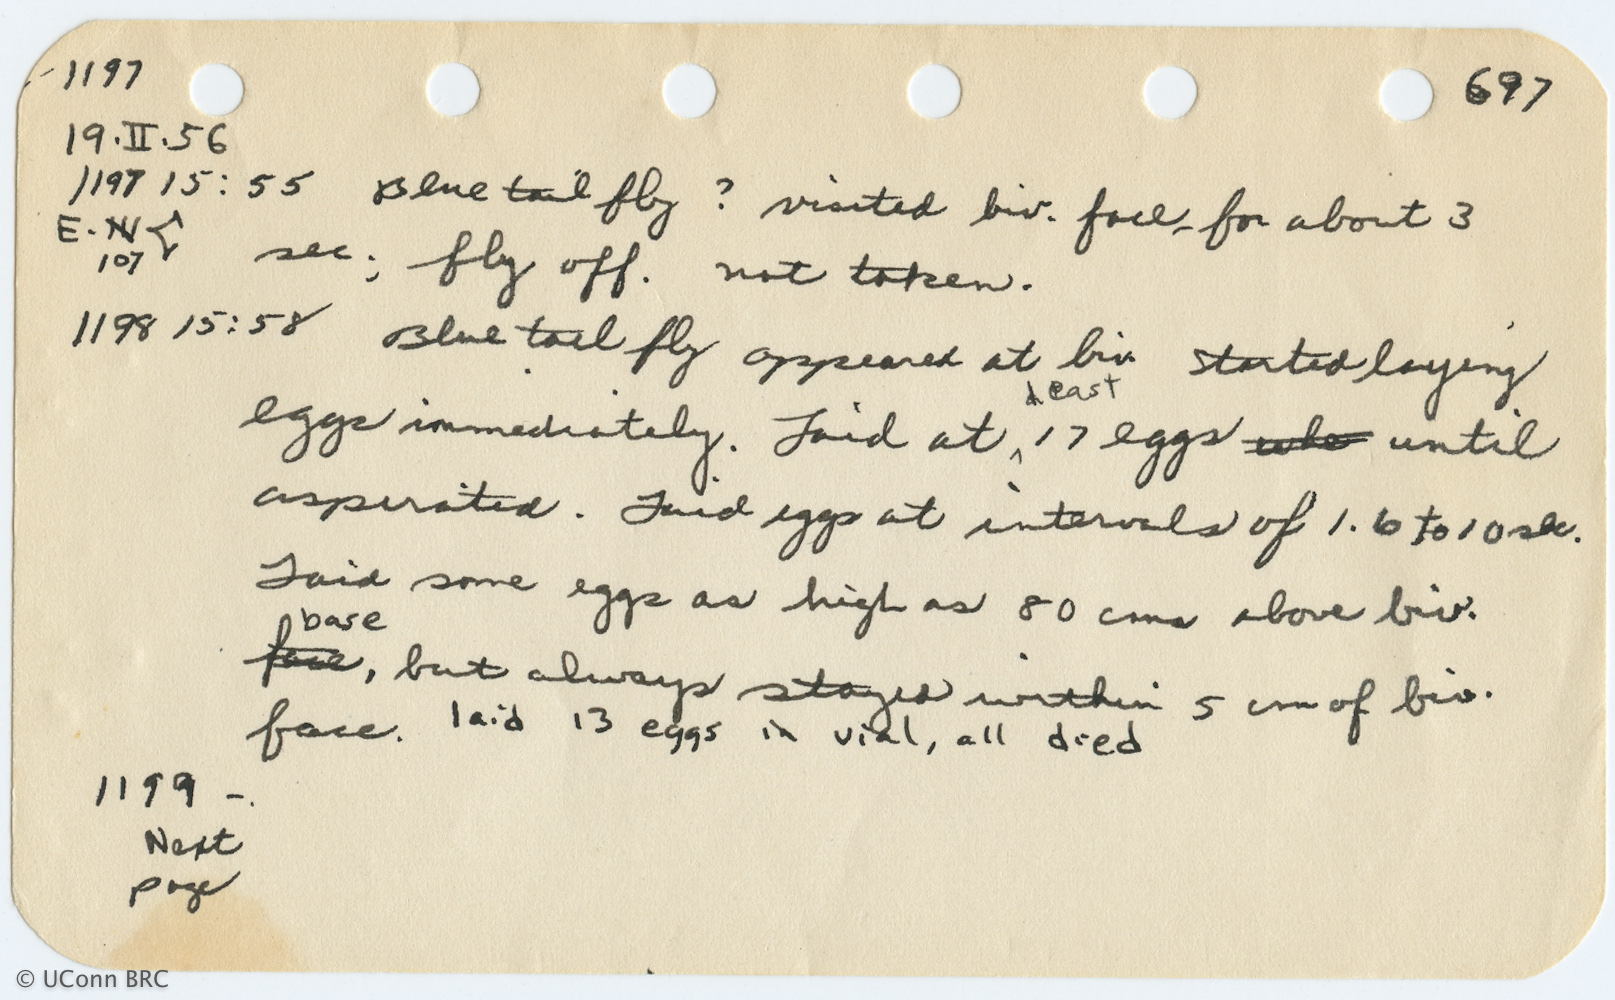 1197 697
19.II.56
1197 15:55 Blue tail fly ? visited biv. face for about 3
E.
107 sec; fly off. not taken.
1198 15:58 Blue tail fly appeared at biv. started laying
least
eggs immediately. Laid at ^ 17 eggs until
aspirated. Laid eggs at intervals of 1.6 to 10 sec.
Laid some eggs as high as 80 cms above biv.
base
face, but always stayed within 5 cm of biv.
face. laid 13 eggs in vial, all died
1199 -.
Next
page
© UConn BRC